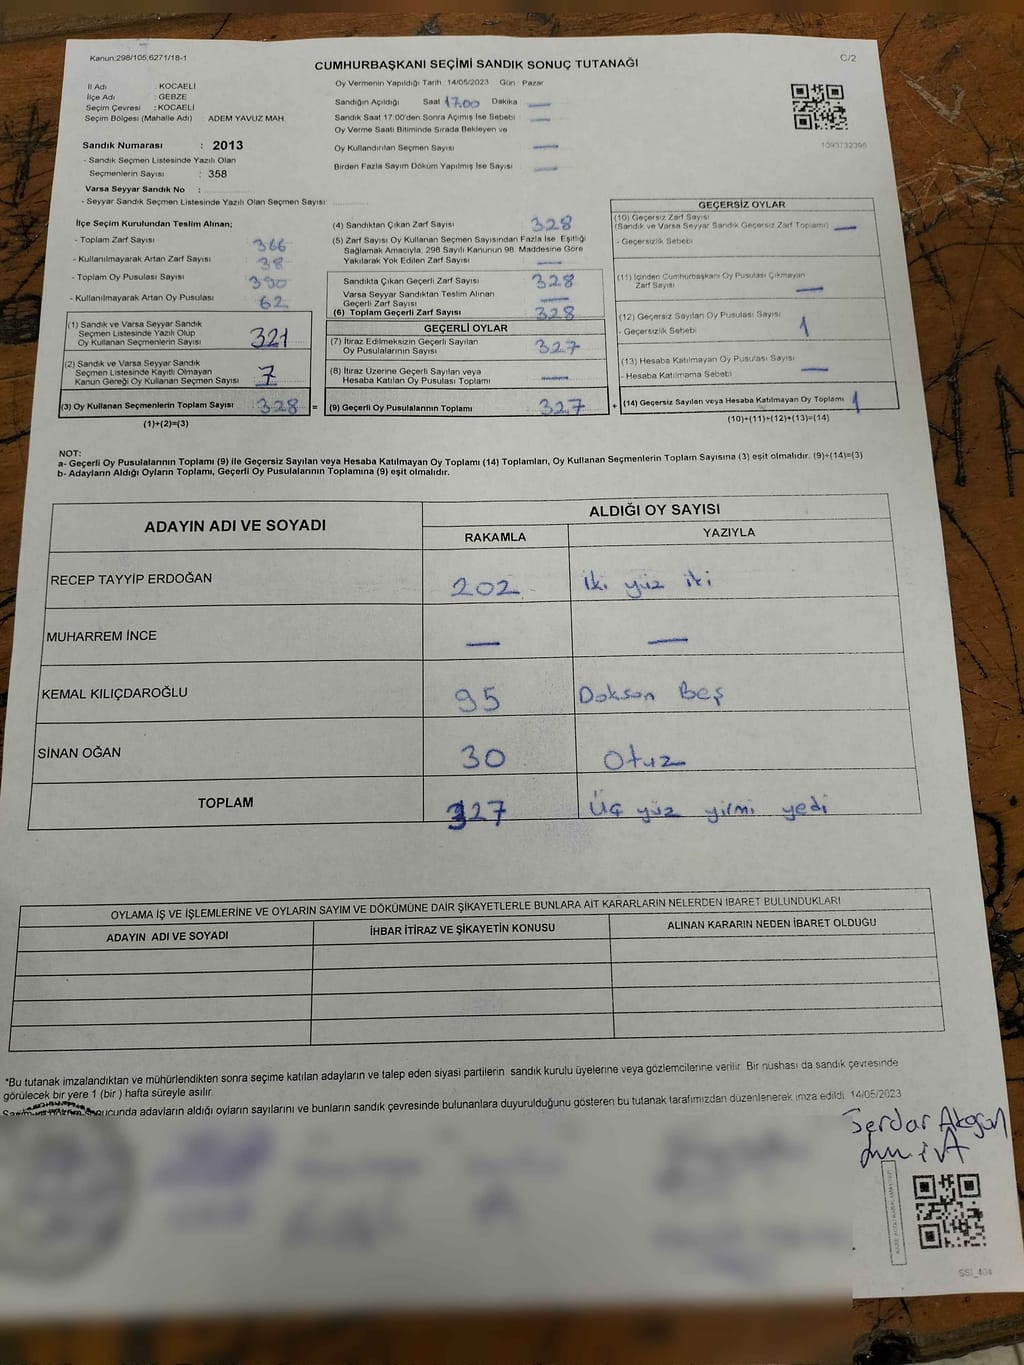 Kanun;298/105,6271/18-1
CUMHURBAŞKANI SEÇİMİ SANDIK SONUÇ TUTANAĞI
C/2
İl Adı : KOCAELİ
İlçe Adı : GEBZE
Seçim Çevresi : KOCAELİ
Seçim Bölgesi (Mahalle Adı) : ADEM YAVUZ MAH.
Oy Vermenin Yapıldığı Tarih :14/05/2023 Gün : Pazar
Sandığın Açıldığı Saat 17.00 Dakika —
Sandık Saat 17:00'den Sonra Açımış İse Sebebi —
Oy Verme Saati Bitiminde Sırada Bekleyen ve
Oy Kullandırılan Seçmen Sayısı —
Birden Fazla Sayım Döküm Yapılmış İse Sayısı —
1093732396
Sandık Numarası : 2013
- Sandık Seçmen Listesinde Yazılı Olan
Seçmenlerin Sayısı : 358
Varsa Seyyar Sandık No :
- Seyyar Sandık Seçmen Listesinde Yazılı Olan Seçmen Sayısı:
İlçe Seçim Kurulundan Teslim Alınan;
- Toplam Zarf Sayısı 366
- Kullanılmayarak Artan Zarf Sayısı 38
- Toplam Oy Pusulası Sayısı 390
- Kullanılmayarak Artan Oy Pusulası 62
(1) Sandık ve Varsa Seyyar Sandık
Seçmen Listesinde Yazılı Olup
Oy Kullanan Seçmenlerin Sayısı 321
(2) Sandık ve Varsa Seyyar Sandık
Seçmen Listesinde Kayıtlı Olmayan
Kanun Gereği Oy Kullanan Seçmen Sayısı 7
(3) Oy Kullanan Seçmenlerin Toplam Sayısı 328 =
(1)+(2)=(3)
(4) Sandıktan Çıkan Zarf Sayısı 328
(5) Zarf Sayısı Oy Kullanan Seçmen Sayısından Fazla İse, Eşitliği
Sağlamak Amacıyla, 298 Sayılı Kanunun 98. Maddesine Göre
Yakılarak Yok Edilen Zarf Sayısı —
Sandıkta Çıkan Geçerli Zarf Sayısı 328
Varsa Seyyar Sandıktan Teslim Alınan
Geçerli Zarf Sayısı —
(6) Toplam Geçerli Zarf Sayısı 328
GEÇERLİ OYLAR
(7) İtiraz Edilmeksizin Geçerli Sayılan
Oy Pusulalarının Sayısı 327
(8) İtiraz Üzerine Geçerli Sayılan veya
Hesaba Katılan Oy Pusulası Toplamı —
(9) Geçerli Oy Pusulalarının Toplamı 327 +
GEÇERSİZ OYLAR
(10) Geçersiz Zarf Sayısı
(Sandık ve Varsa Seyyar Sandık Geçersiz Zarf Toplamı) —
- Geçersizlik Sebebi
(11) İçinden Cumhurbaşkanı Oy Pusulası Çıkmayan
Zarf Sayısı —
(12) Geçersiz Sayılan Oy Pusulası Sayısı
- Geçersizlik Sebebi 1
(13) Hesaba Katılmayan Oy Pusulası Sayısı
- Hesaba Katılmama Sebebi —
(14) Geçersiz Sayılan veya Hesaba Katılmayan Oy Toplamı 1
(10)+(11)+(12)+(13)=(14)
NOT:
a- Geçerli Oy Pusulalarının Toplamı (9) ile Geçersiz Sayılan veya Hesaba Katılmayan Oy Toplamı (14) Toplamları, Oy Kullanan Seçmenlerin Toplam Sayısına (3) eşit olmalıdır. (9)+(14)=(3)
b- Adayların Aldığı Oyların Toplamı, Geçerli Oy Pusulalarının Toplamına (9) eşit olmalıdır.
ADAYIN ADI VE SOYADI
ALDIĞI OY SAYISI
RAKAMLA YAZIYLA
RECEP TAYYİP ERDOĞAN 202 iki yüz iki
MUHARREM İNCE — —
KEMAL KILIÇDAROĞLU 95 Doksan Beş
SİNAN OĞAN 30 Otuz
TOPLAM 327 Üç yüz yirmi yedi
OYLAMA İŞ VE İŞLEMLERİNE VE OYLARIN SAYIM VE DÖKÜMÜNE DAİR ŞİKAYETLERLE BUNLARA AİT KARARLARIN NELERDEN İBARET BULUNDUKLARI
ADAYIN ADI VE SOYADI
İHBAR İTİRAZ VE ŞİKAYETİN KONUSU
ALINAN KARARIN NEDEN İBARET OLDUĞU
*Bu tutanak imzalandıktan ve mühürlendikten sonra seçime katılan adayların ve talep eden siyasi partilerin sandık kurulu üyelerine veya gözlemcilerine verilir. Bir nüshası da sandık çevresinde
görülecek bir yere 1 (bir ) hafta süreyle asılır.
sonucunda adayların aldığı oyların sayılarını ve bunların sandık çevresinde bulunanlara duyurulduğunu gösteren bu tutanak tarafımızdan düzenlenerek imza edildi. 14/05/2023
Serdar Akgün
SSI_404